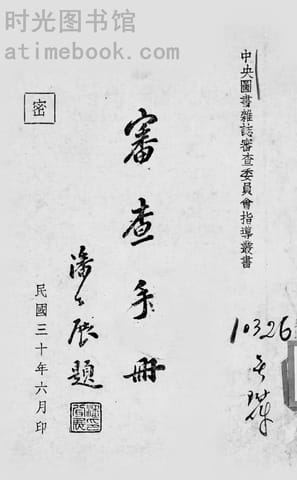 时光图书馆
atimebook.com
中央圖書雜誌審查委員會指導叢書
密
審查手冊
潘公展題
民國三十年六月印
10326